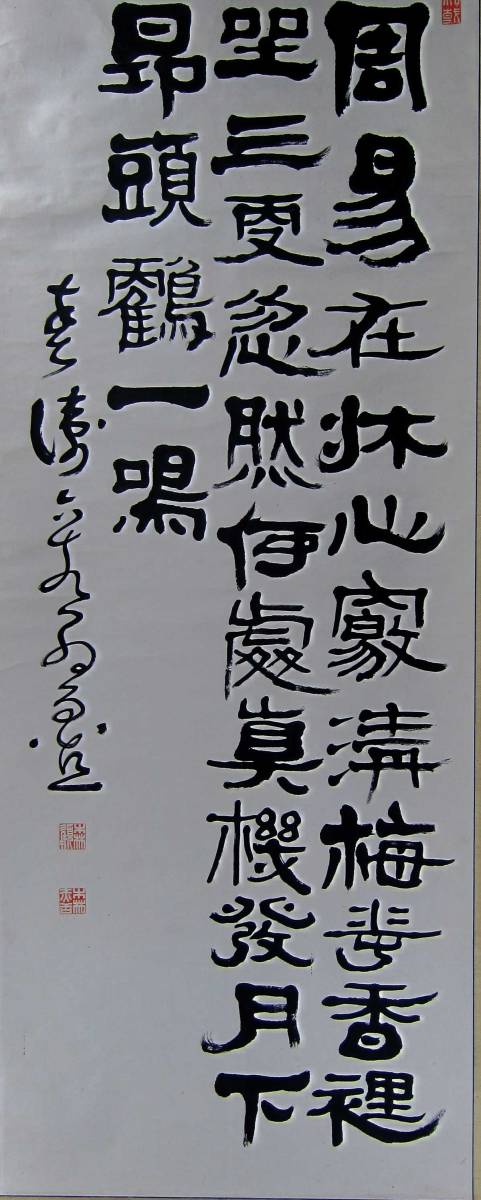 周易在牀心竅清梅花香裡
坐三更忽然何處真機發月下
昂頭鶴一鳴